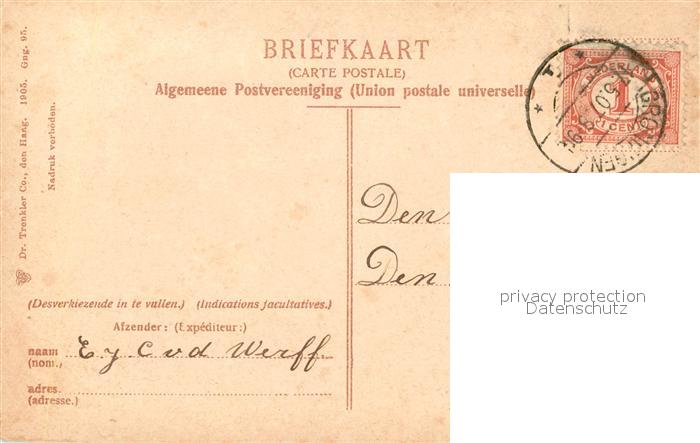 BRIEFKAART
(CARTE POSTALE)
Algemeene Postvereeniging (Union postale universelle)
NEDERLAND
1
1 CENT
GRONINGEN
Dr. Trenkler Co., den Haag. 1905. Gng. 95.
Nadruk verboden.
Den
Den
privacy protection
Datenschutz
(Desverkiezende in te vullen.) (Indications facultatives.)
Afzender: (Expéditeur:)
naam E y C v d Werff.
(nom.)
adres.
(adresse.)